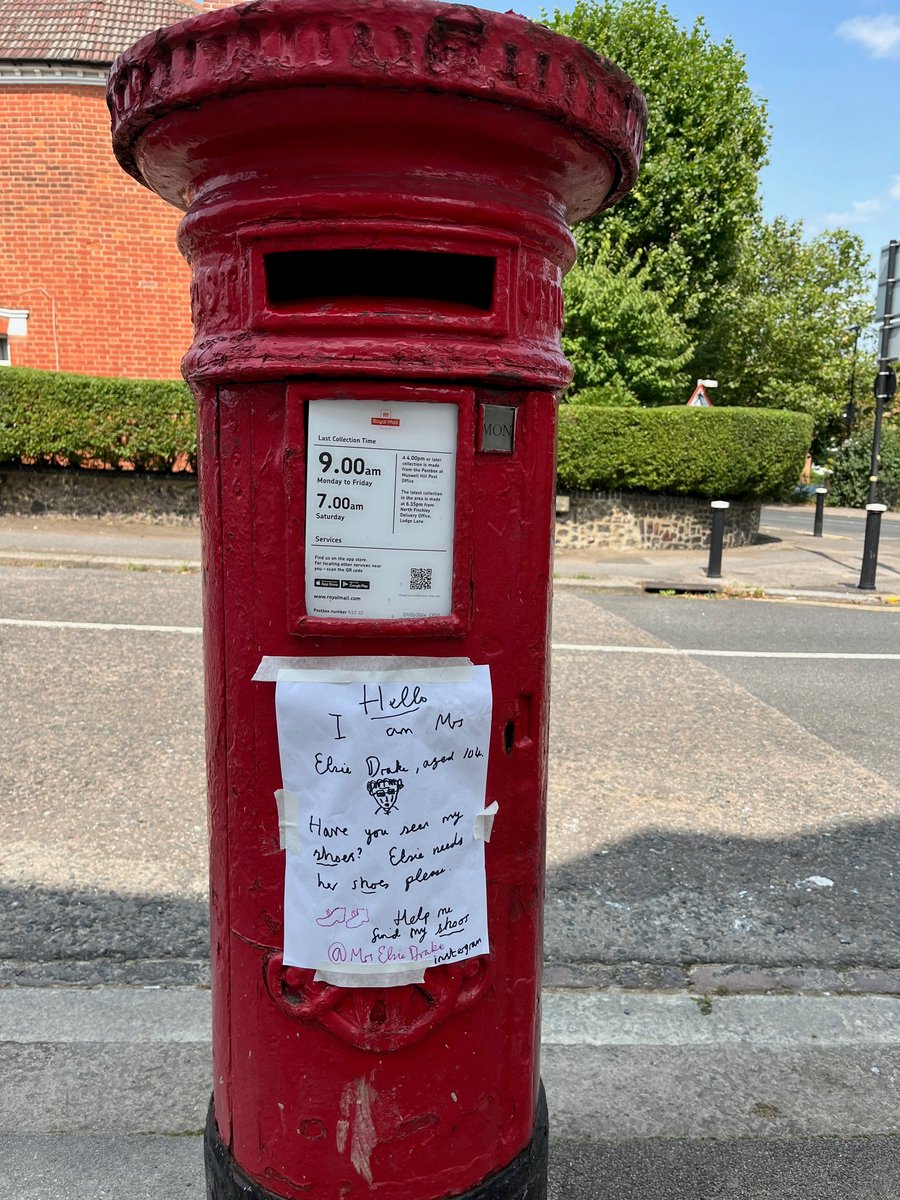 Royal Mail
Last Collection Time
9.00am
Monday to Friday
7.00am
Saturday
a 4.00pm or later
collection is made
from the Postbox at
Muswell Hill Post
Office
The latest collection
in the area is made
at 6.15pm from
North Finchley
Delivery Office,
Lodge Lane
Services
Find us on the app store.
For locating other services near
you – scan the QR code
App Store
Google Play
www.royalmail.com
Postbox number N10
MON
Hello
I am Mrs
Elsie Drake, aged 104.
Have you seen my
shoes? Elsie needs
her shoes please.
Help me
find my shoos
@Mrs Elsie Drake
instegram